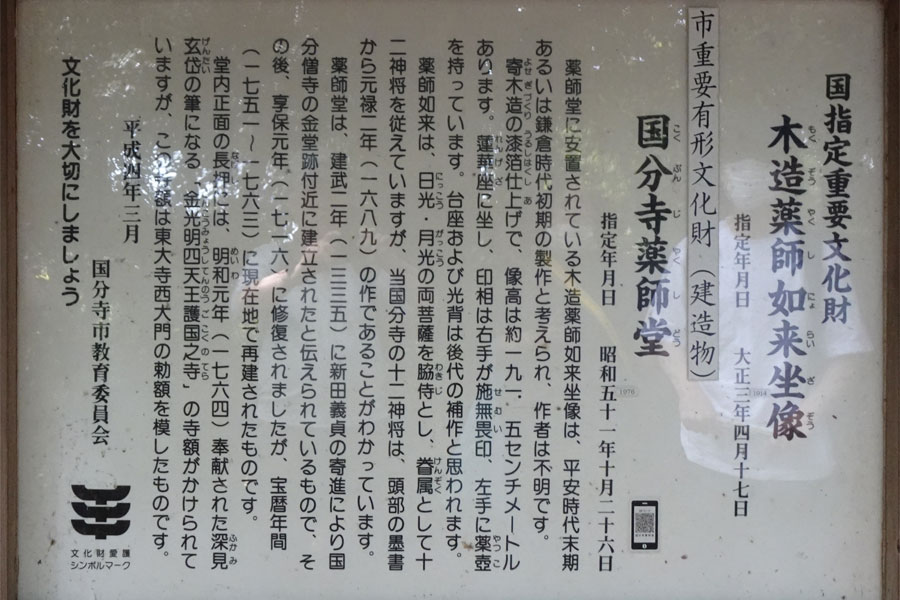 国指定重要文化財
木造薬師如来坐像
もくぞうやくしにょらいざぞう
指定年月日 大正三年四月十七日
1914
市重要有形文化財(建造物)
国分寺薬師堂
こくぶんじやくしどう
指定年月日 昭和五十一年十月二十六日
1976
薬師堂に安置されている木造薬師如来坐像は、平安時代末期
あるいは鎌倉時代初期の製作と考えられ、作者は不明です。
寄木造の漆箔仕上げで、像高は約一九一.五センチメートル
よせぎづくり うるしはくしあ
あります。蓮華座に坐し、印相は右手が施無畏印、左手に薬壺
れんげざ せむい やっこ
を持っています。台座および光背は後代の補作と思われます。
薬師如来は、日光・月光の両菩薩を脇侍とし、眷属として十
にっこう がっこう わきじ けんぞく
二神将を従えていますが、当国分寺の十二神将は、頭部の墨書
から元禄二年(一六八九)の作であることがわかっています。
薬師堂は、建武二年(一三三五)に新田義貞の寄進により国
分僧寺の金堂跡付近に建立されたと伝えられているもので、そ
の後、享保元年(一七一六)に修復されましたが、宝暦年間
(一七五一~一七六三)に現在地で再建されたものです。
堂内正面の長押には、明和元年(一七六四)奉献された深見
なげし めいわ ふかみ
玄岱の筆になる「金光明四天王護国之寺」の寺額がかけられて
げんたい こんこうみょうしてんのうごこくのてら
いますが、この寺額は東大寺西大門の勅額を模したものです。
平成四年三月
国分寺市教育委員会
文化財を大切にしましょう
文化財愛護
シンボルマーク